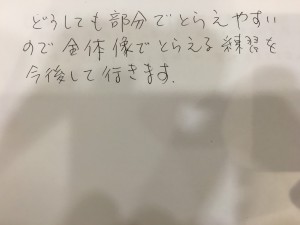 どうしても部分でとらえやすい
ので全体像でとらえる練習を
今後して行きます.